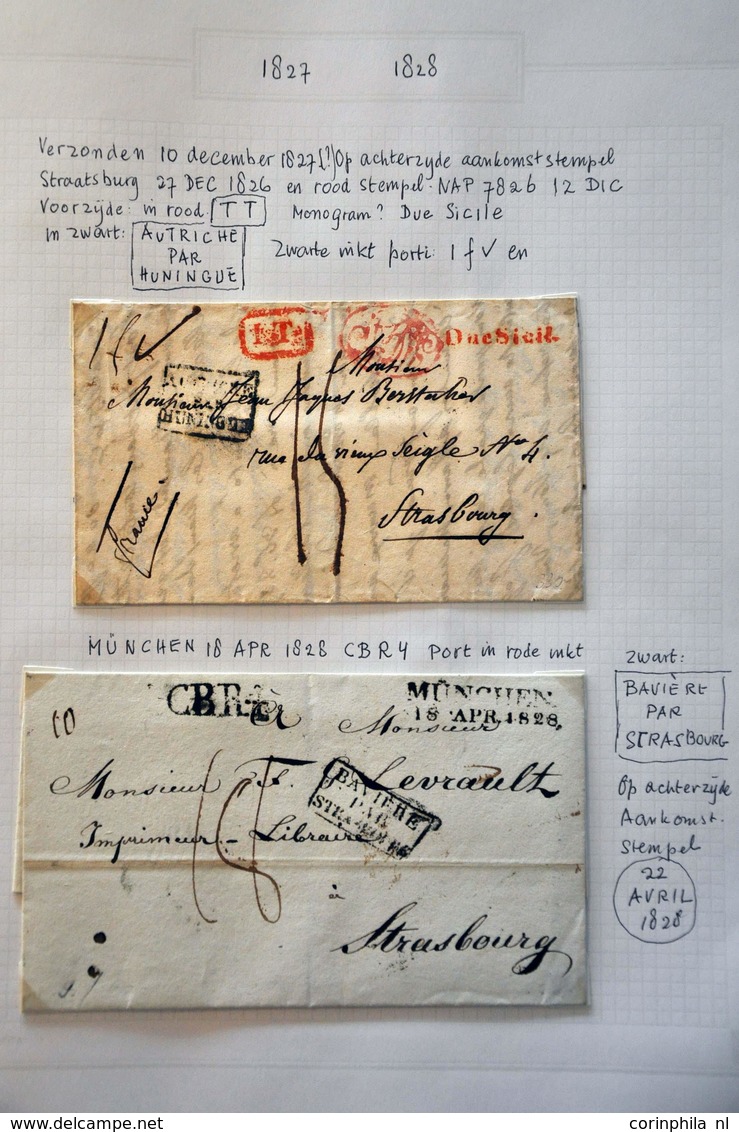 1827 1828
Verzonden 10 december 1827(?) Op achterzyde aankomststempel
Straatsburg 27 DEC 1826 en rood stempel: NAP 7826 12 DIC
Voorzijde: in rood: TT Monogram? Due Sicile
in zwart: AUTRICHE
PAR
HUNINGUE
Zwarte inkt porti: 1 f √ en
1 f √
T.T.
Due Sicil.
Monsieur
Monsieur Jean Jaques
HUNINGUE
rue du vieux Seigle No 4.
Strasbourg.
France.
MÜNCHEN 18 APR 1828 CBR4 Port in rode inkt
Zwart:
BAVIÈRE
PAR
STRASBOURG
Op achterzijde
Aankomst.
stempel
22
AVRIL
1828
CBR4
MÜNCHEN
18 APR. 1828.
10
Monsieur
Monsieur Levrault
BAVIÈRE
PAR
STRASBOURG
Imprimeur-Libraire
à
Strasbourg
www.delcampe.net
corinphila nl